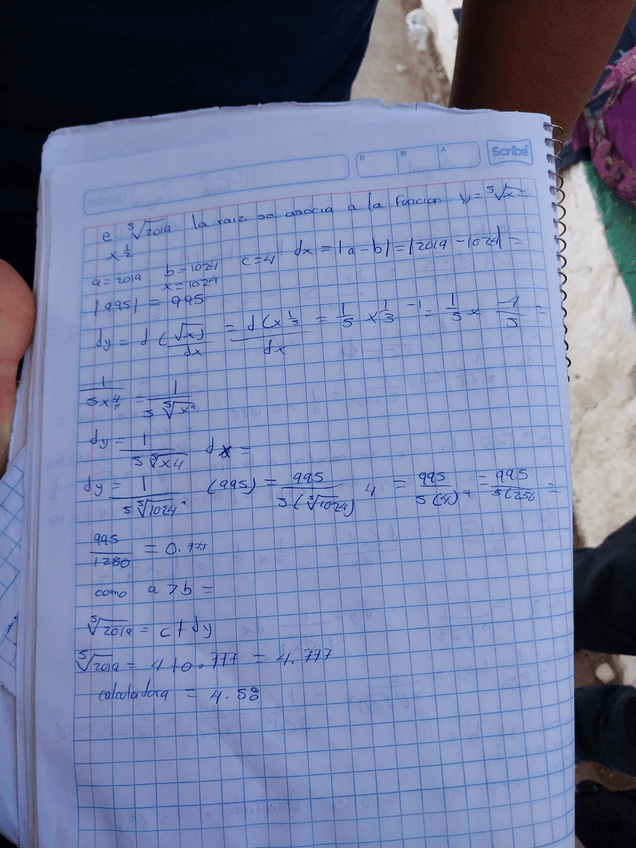 D M A Scribe
e ⁵√2019 la raiz se asocia a la funcion y = ⁵√x =
x^1/5
a = 2019 b = 1024 c = 4 dx = |a - b| = |2019 - 1024| =
x = 1024
|995| = 995
dy = d(√x)/dx = d(x^1/5)/dx = 1/5 x^1/5 ^-1 = 1/5 x ^-4/5 =
1/5x^4/5 = 1/5 ⁵√x⁴
dy = 1/5 ⁵√x4 dx =
dy = 1/5 ⁵√1024⁴ (995) = 995/5(⁵√1024) 4 = 995/5(4)⁴ = 995/5(256 =
995/1280 = 0.777
como a > b =
⁵√2019 = c + dy
⁵√2019 = 4 + 0.777 = 4.777
calculadora = 4.58